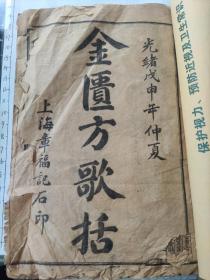 光緒戊申年仲夏
金匱方歌括
上海章福記石印
保护视力、预防近视及卫生常识